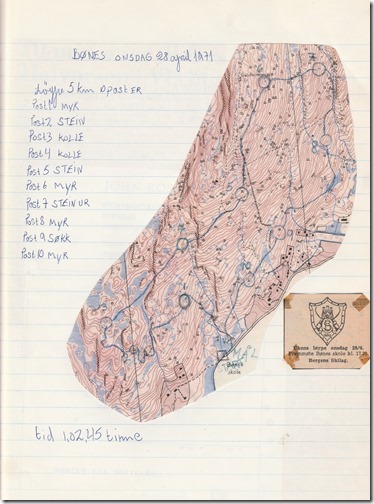 BØNES ONSDAG 28 april 1971
løype 5 km 10 poster
Post 1 MYR
Post 2 STEIN
Post 3 KOLLE
Post 4 KOLLE
Post 5 STEIN
Post 6 MYR
Post 7 STEINUR
Post 8 MYR
Post 9 SØKK
Post 10 MYR
MÅL
Bønes
skole
løype onsdag 28/4.
Frammøte Bønes skole kl. 17
Bergens Skilag.
tid 1,02,45 time